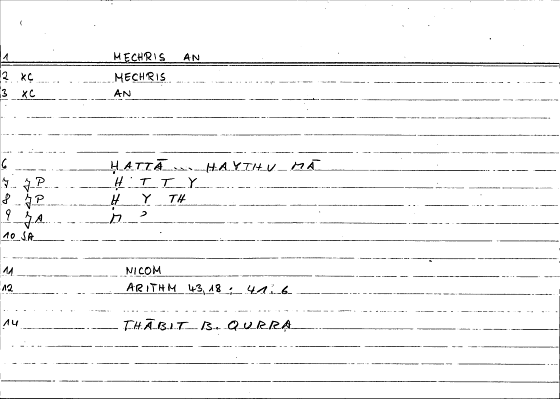 1 MECHRIS AN
2 XC MECHRIS
3 XC AN
6 ḤATTĀ ... ḤAYTHU MĀ
7 JP Ḥ T T Y
8 JP Ḥ Y TH
9 JA M ʾ
10 SA
11 NICOM
12 ARITHM 43,18 : 41.6
14 THĀBIT B. QURRA